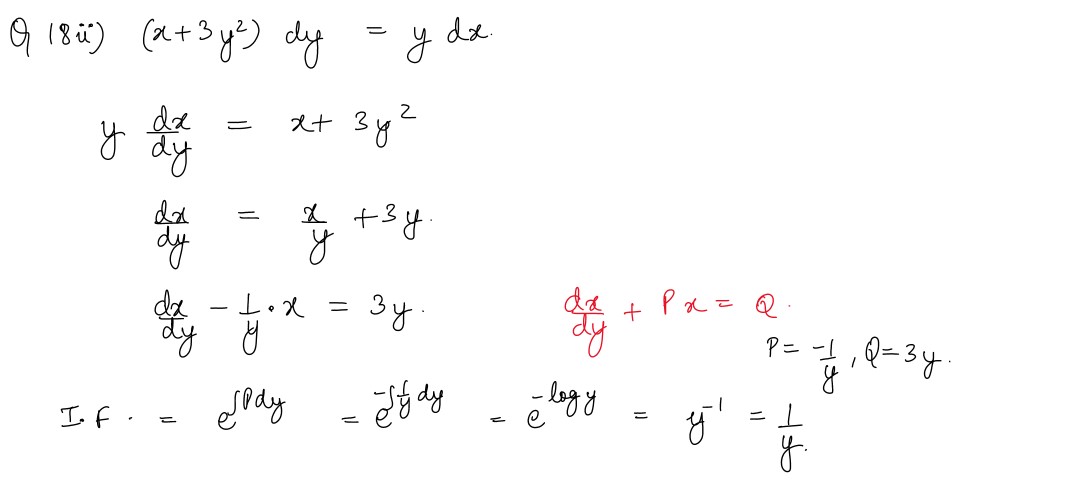 Q 18 ii) (x+3y²) dy = y dx.
y dx/dy = x+ 3y²
dx/dy = x/y +3y.
dx/dy - 1/y · x = 3y. dx/dy + Px = Q.
P= -1/y, Q=3y.
I.F. = e^∫Pdy = e^-∫1/y dy = e^-log y = y^-1 = 1/y.